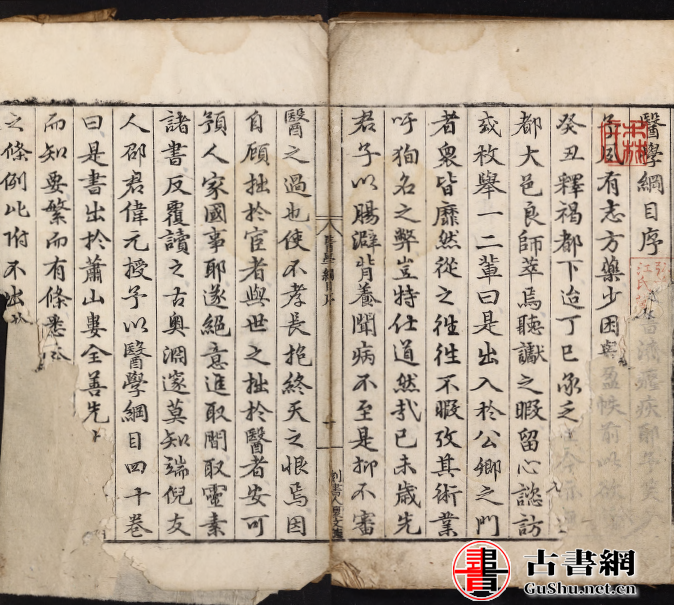 醫學綱目序
予夙有志方藥少因
癸丑釋褐都下迨丁巳承乏
都大邑良師萃焉聽讞之暇留心諮訪
或枚舉一二輩曰是出入於公卿之門
者衆皆靡然從之徃徃不暇攷其術業
吁狥名之弊豈特仕道然哉已未歳先
君子以腸澼背養聞病不至是抑不審
醫學綱目序
醫之過也使不孝長抱終天之恨焉因
自顧拙於宦者與世之拙於醫者安可
預人家國事耶遂絕意進取間取靈素
諸書反覆讀之古奥淵邃莫知端倪友
人邵君偉元授予以醫學綱目四十卷
曰是書出於蕭山婁全善先
而知要繁而有條悉
之條例此附不出
古書網
GuShu.net.cn